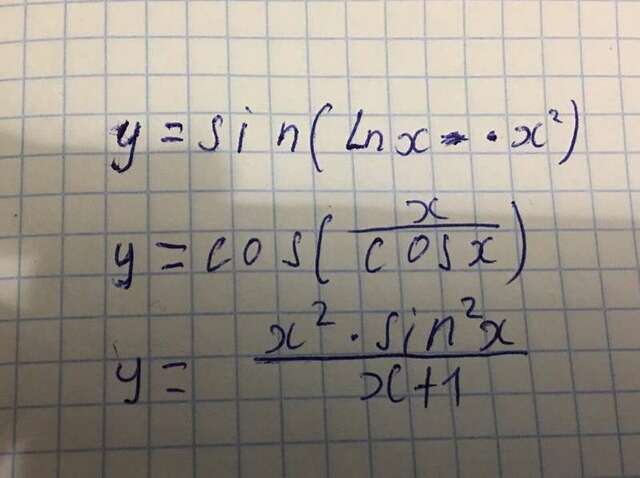 y = sin(ln x · x²)
y = cos(x / cos x)
y = (x² · sin² x) / (x + 1)